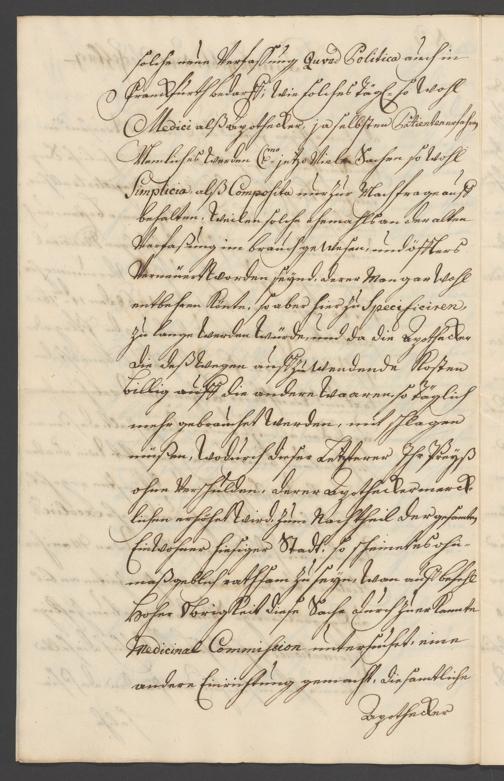 solche neue Verfassung Quoad Politica auch in
Franckfurth bedarff, wie solches tägl. so wohl
Medici alß Apothecker, ja selbsten Patienten erfahren
Nemliches werden jetzo viele Sachen so wohl
Simplicia alß Composita nur zur Nachfrage auff
behalten, weilen solche ehemahls an der alten
Verfaßung im brauch gewesen, und öffters
Verneuert worden seynd, derer man gar wohl
entbehren könte, so aber hier zu Specificiren
zu lange werden würde, und da die Apothecker
die deßwegen auff zu wendende Kosten
billig auff die andere waaren, so täglich
mehr gebrauchet werden, mit schlagen
müßen, wodurch dieser Letzterer Ihr Preyß
ohne Verschulden derer Apothecker merck-
lichen erhöhet wird, zum Nachtheil der gesamten
Einwohner hiesiger Stadt, so scheinet es ohn-
maßgeblich rathsam zu seyn, wan auff befehl
Hoher Obrigkeit diese Sache durch zuerkante
Medicinal Commission untersuchet, eine
andere Einrichtung gemacht, die samtliche
Apothecker